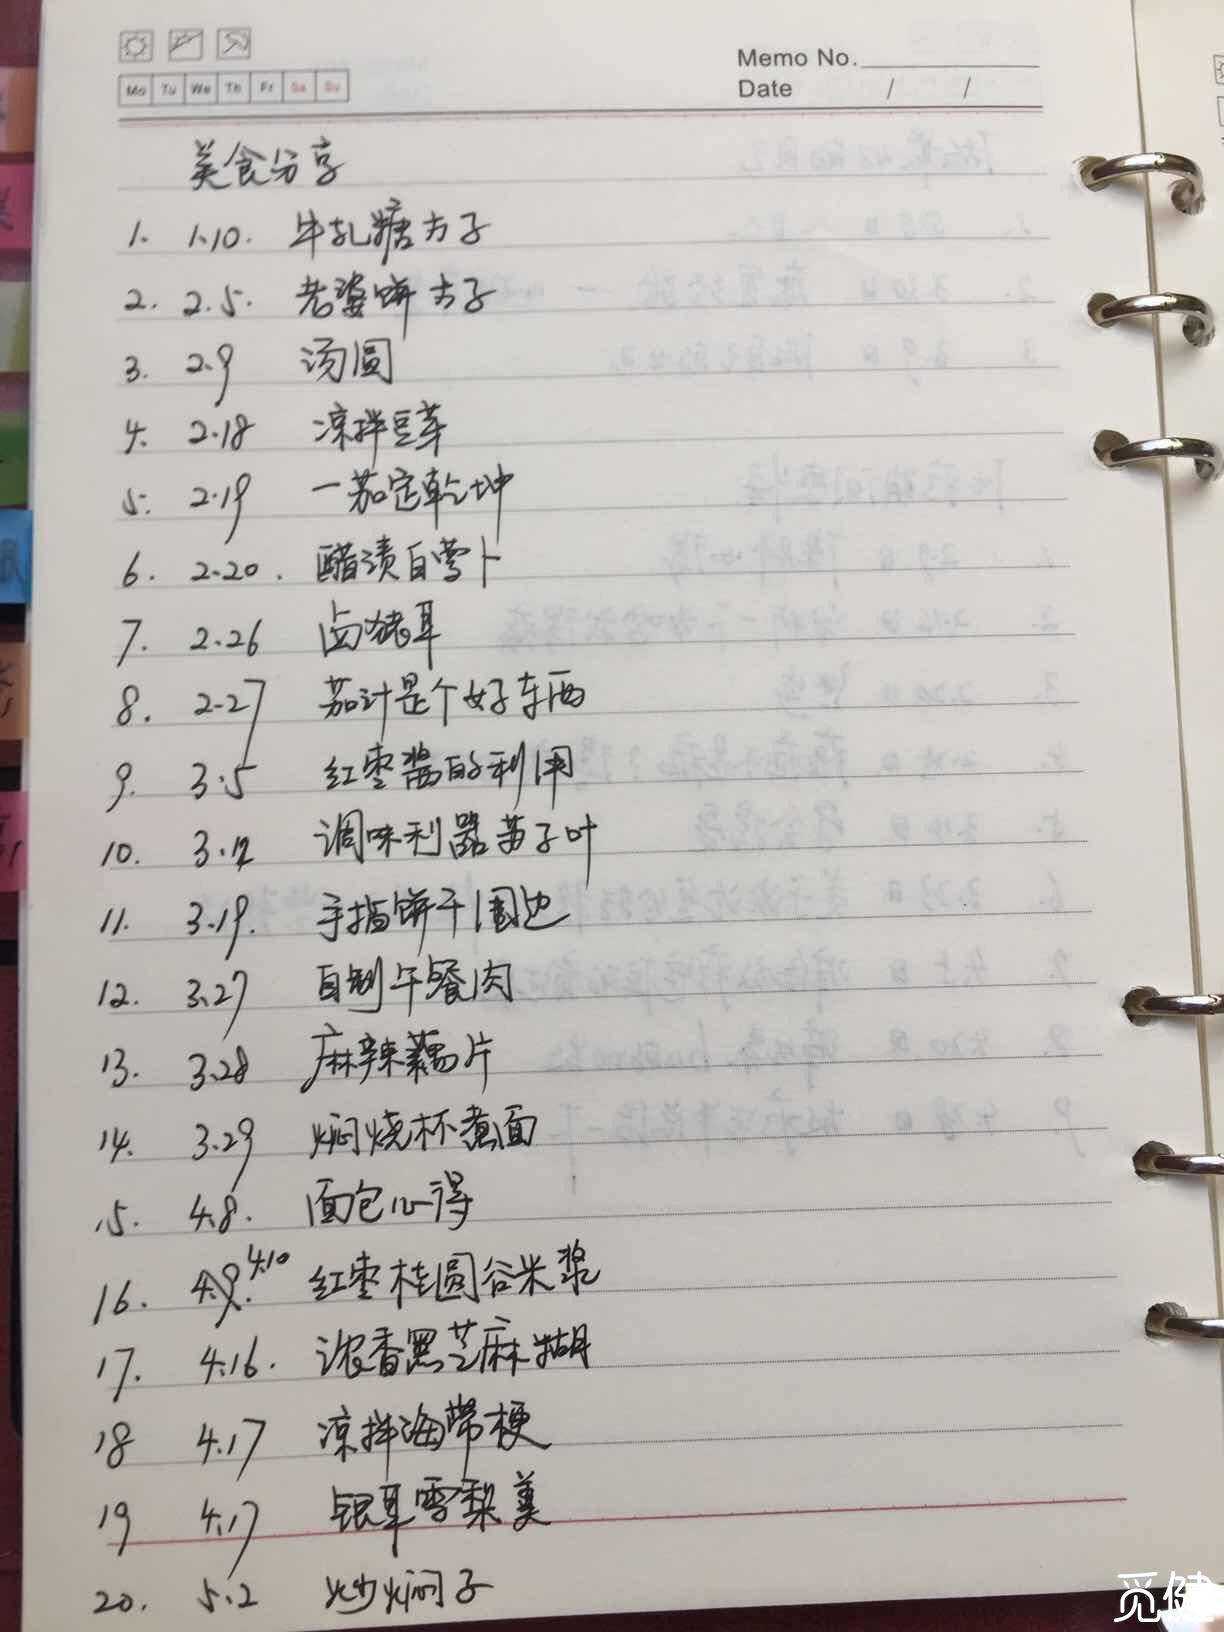 Memo No.
Mo Tu We Th Fr Sa Su
Date / /
美食分享
1. 1.10. 牛轧糖方子
2. 2.5. 老婆饼方子
3. 2.9 汤圆
4. 2.18 凉拌豆芽
5. 2.19 一茄定乾坤
6. 2.20. 醋渍白萝卜
7. 2.26 卤猪耳
8. 2.27 茄汁是个好东西
9. 3.5 红枣酱的利用
10. 3.12 调味利器苏子叶
11. 3.19. 手指饼干围边
12. 3.27 自制午餐肉
13. 3.28 麻辣藕片
14. 3.29 焖烧杯煮面
15. 4.8. 面包心得
16. 4.9. 4.10 红枣桂圆谷米浆
17. 4.16. 浓香黑芝麻糊
18 4.17 凉拌海带梗
19 4.17 银耳雪梨羹
20. 5.2 炒焖子
觅健